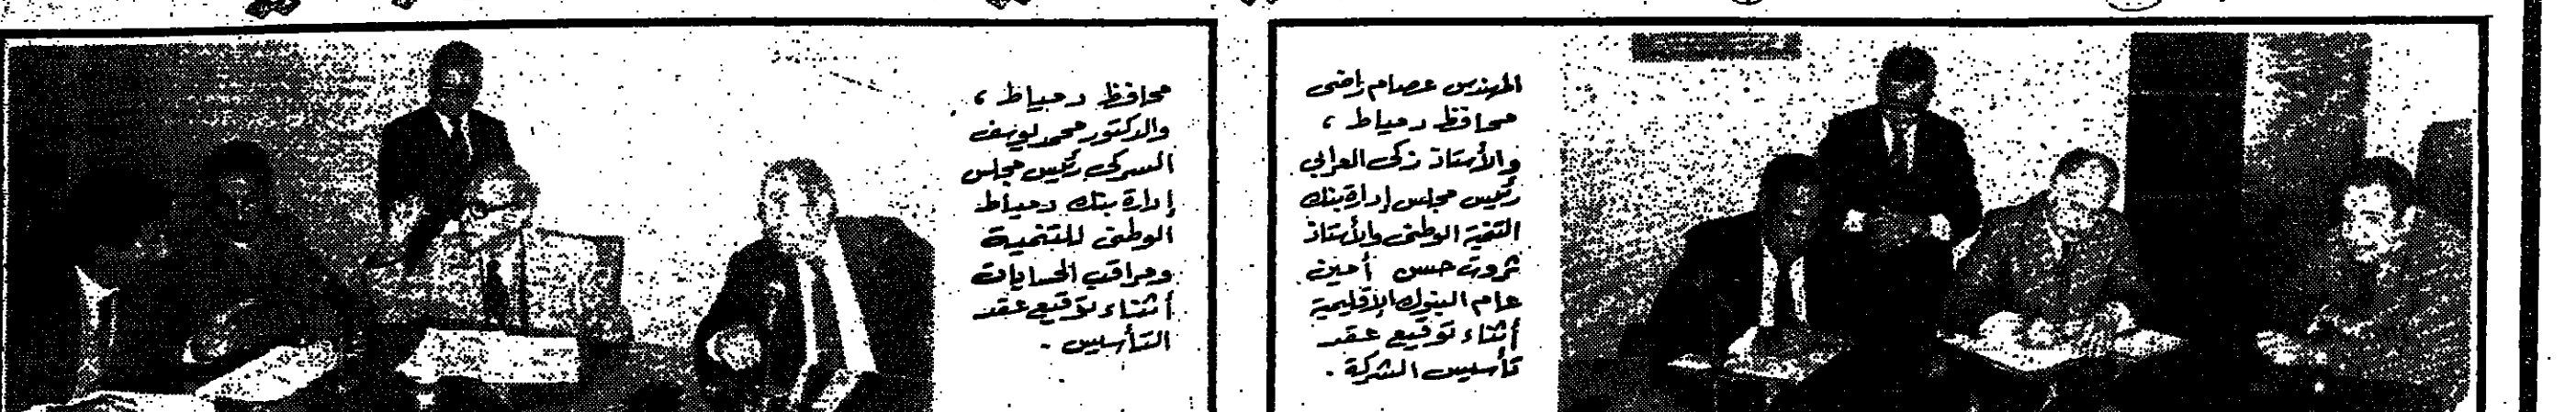 المهندس عصام راضى
محافظ دمياط ،
والأستاذ زكى العرابى
رئيس مجلس إدارة بنك
التنمية الوطنى والأستاذ
ثروت حسن أمين
عام البنوك الإقليمية
أثناء توقيع عقد
تأسيس الشركة .
محافظ دمياط ،
والدكتور محمد يوسف
السركى رئيس مجلس
إدارة بنك دمياط
الوطنى للتنمية
ومراقب الحسابات
أثناء توقيع عقد
التأسيس .